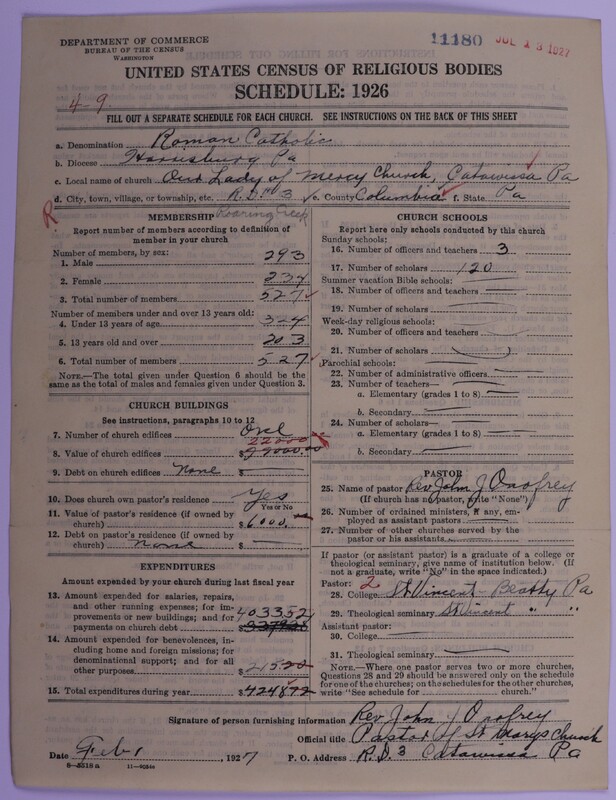 DEPARTMENT OF COMMERCE
BUREAU OF THE CENSUS
WASHINGTON
11180 JUL 13 1927
UNITED STATES CENSUS OF RELIGIOUS BODIES
SCHEDULE: 1926
4-9
FILL OUT A SEPARATE SCHEDULE FOR EACH CHURCH. SEE INSTRUCTIONS ON THE BACK OF THIS SHEET
a. Denomination Roman Catholic
b. Diocese Harrisburg Pa
c. Local name of church Our Lady of Mercy Church, Catawissa Pa
d. City, town, village, or township, etc. R.D. 3 e. County Columbia f. State Pa
R
Roaring Creek
MEMBERSHIP
Report number of members according to definition of
member in your church
Number of members, by sex:
1. Male 293
2. Female 234
3. Total number of members 527
Number of members under and over 13 years old:
4. Under 13 years of age 324
5. 13 years old and over 203
6. Total number of members 527
NOTE.—The total given under Question 6 should be
same as the total of males and females given under Question 3.
CHURCH BUILDINGS
See instructions, paragraphs 10 to 12
7. Number of church edifices One
22000
8. Value of church edifices $
9. Debt on church edifices None $
10. Does church own pastor's residence Yes
Yes or No
11. Value of pastor's residence (if owned by
church) $ 6000.
12. Debt on pastor's residence (if owned by
church) none $
EXPENDITURES
Amount expended by your church during last fiscal year
13. Amount expended for salaries, repairs,
and other running expenses; for im-
provements or new buildings; and for 4033.52
payments on church debt $
14. Amount expended for benevolences, in-
cluding home and foreign missions; for
denominational support; and for all
other purposes $ 215.20
15. Total expenditures during year $ 4248.72
CHURCH SCHOOLS
Report here only schools conducted by this church
Sunday schools:
16. Number of officers and teachers 3
17. Number of scholars 120
Summer vacation Bible schools:
18. Number of officers and teachers
19. Number of scholars
Week-day religious schools:
20. Number of officers and teachers
21. Number of scholars
Parochial schools:
22. Number of administrative officers
23. Number of teachers—
a. Elementary (grades 1 to 8)
b. Secondary
24. Number of scholars—
a. Elementary (grades 1 to 8)
b. Secondary
PASTOR
25. Name of pastor Rev John J Onofrey
(If church has no pastor, write "None")
26. Number of ordained ministers, if any, em-
ployed as assistant pastors
27. Number of other churches served by the
pastor or his assistants
If pastor (or assistant pastor) is a graduate of a college or
theological seminary, give name of institution below. (If
not a graduate, write "No" in the space indicated.)
Pastor: 2
28. College St Vincent - Beatty Pa
29. Theological seminary St Vincent " "
Assistant pastor:
30. College
31. Theological seminary
NOTE.—Where one pastor serves two or more churches,
Questions 28 and 29 should be answered only on the schedule
for one of the churches; on the schedules for the other churches,
write "See schedule for ------ church."
Signature of person furnishing information Rev John J Onofrey
Official title Pastor of St Marys Church
Date Feb 1, 1927 P. O. Address R.D. 3 Catawissa Pa
8-5518 a